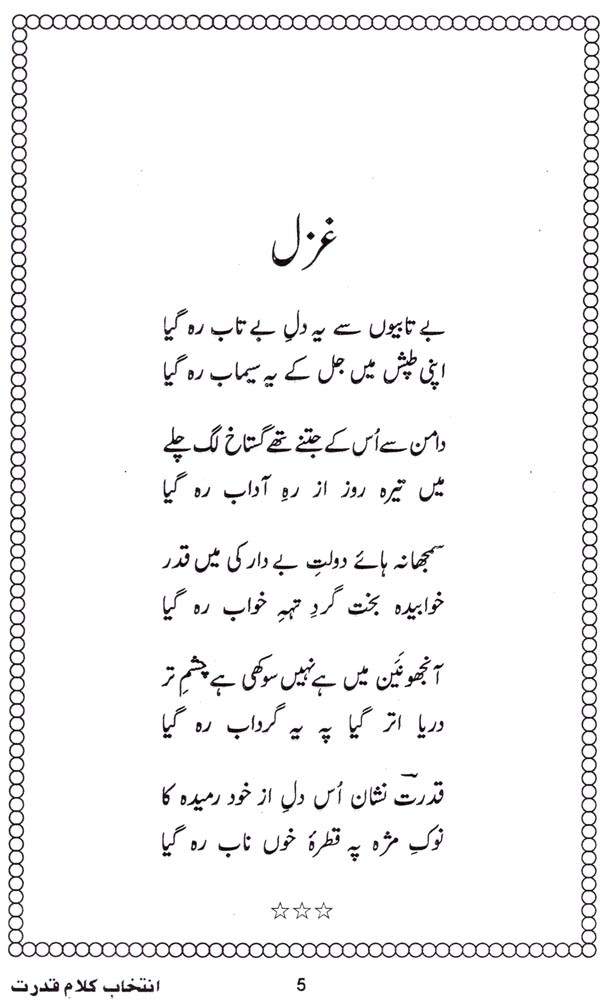 غزل
بے تابیوں سے یہ دلِ بے تاب رہ گیا
اپنی طپش میں جل کے یہ سیماب رہ گیا
دامن سے اُس کے جتنے تھے گستاخ لگ چلے
میں تیرہ روز از رہِ آداب رہ گیا
سمجھا نہ ہائے دولتِ بے دار کی میں قدر
خوابیدہ بخت گردِ تہہِ خواب رہ گیا
میں ہے نہیں سوکھی ہے چشمِ تر
دریا اتر گیا پہ یہ گرداب رہ گیا
قدرتؔ نشان اُس دلِ از خود رمیدہ کا
نوکِ مژہ پہ قطرۂ خوں ناب رہ گیا
☆☆☆
انتخابِ کلامِ قدرت 5